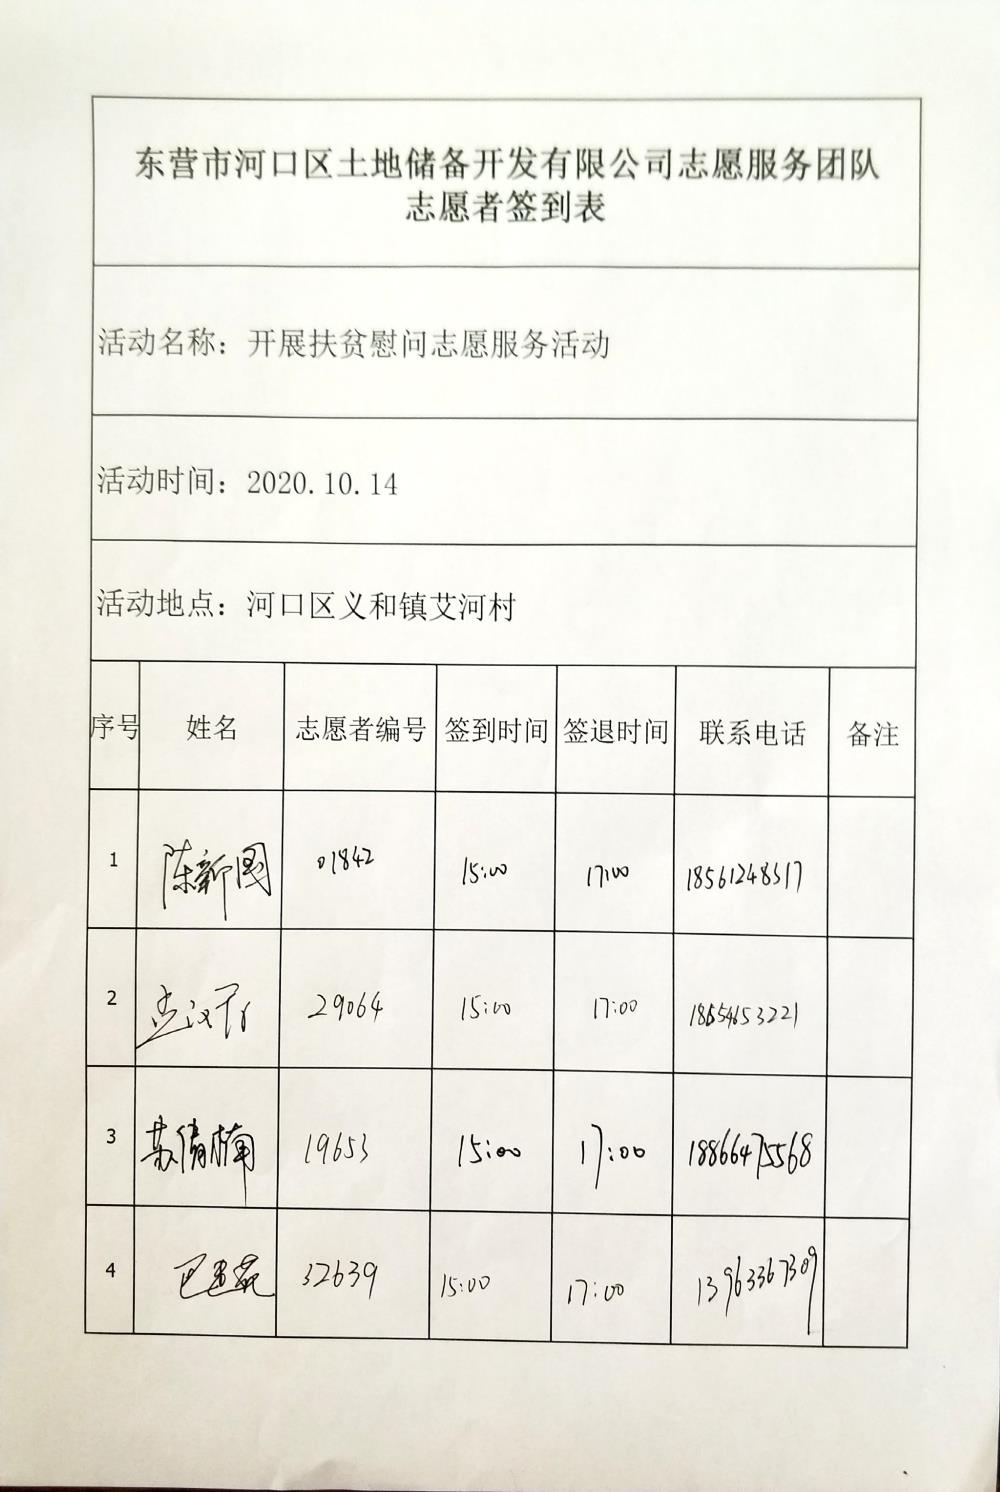 东营市河口区土地储备开发有限公司志愿服务团队
志愿者签到表
活动名称：开展扶贫慰问志愿服务活动
活动时间：2020.10.14
活动地点：河口区义和镇艾河村
序号 姓名 志愿者编号 签到时间 签退时间 联系电话 备注
1 陈新国 01842 15:00 17:00 18561248517
2 29064 15:00 17:00
3 苏倩楠 19653 15:00 17:00 18866475568
4 32639 15:00 17:00 13963367309